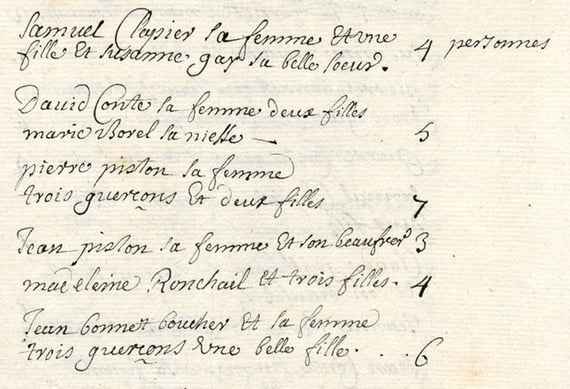 Samuel Clapier sa femme Et vne
fille Et susanne gay sa belle soeur. 4 personnes
David Conte sa femme deux filles
marie Borel sa niesse — 5
pierre piston sa femme
trois guerçons Et deux filles 7
Jean piston sa femme Et son beaufrer 3
madeleine Ronchail Et trois filles. 4
Jean bonnet boucher Et sa femme
trois guerçons Vne belle fille. . . 6